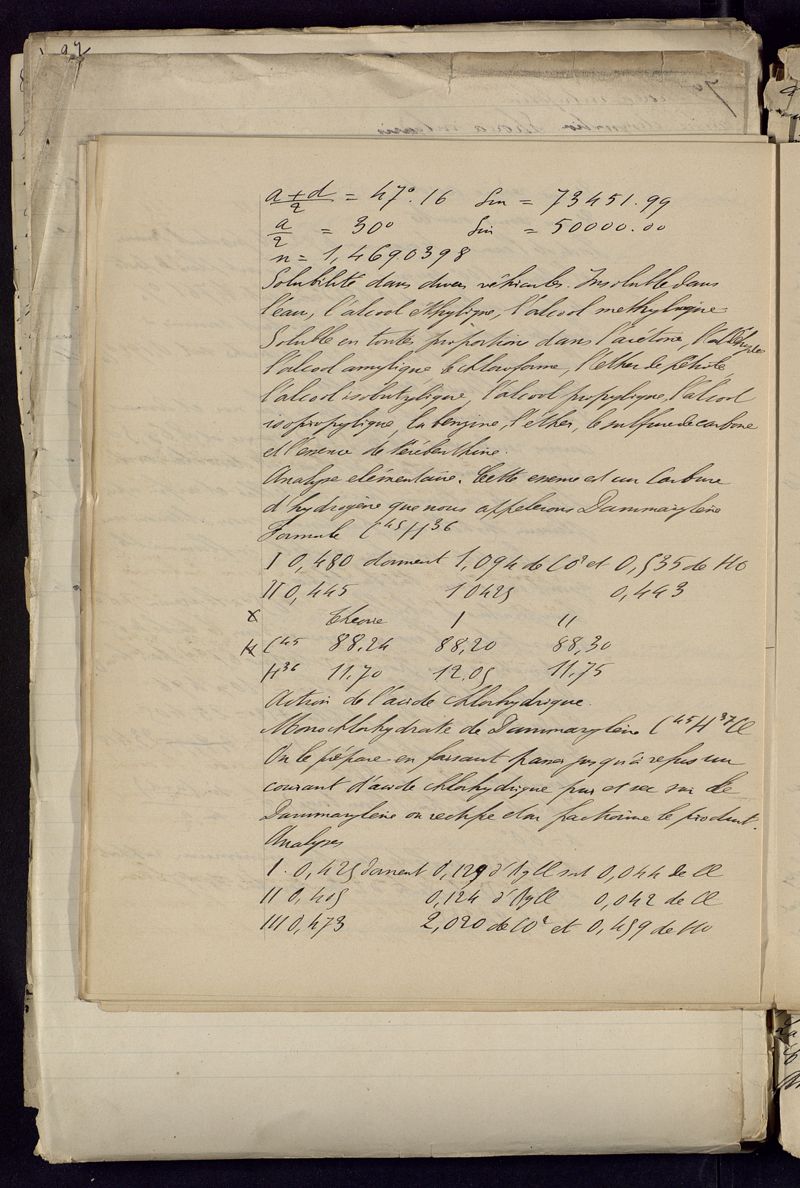 97
a + d / 2 = 47°.16 Sin = 73451.99
a / 2 = 30° Sin = 50000.00
n = 1,4690398
Solubilité dans divers véhicules. Insoluble dans
l'eau, l'alcool éthylique, l'alcool methylique
Soluble en toutes proportions dans l'acétone,
l'alcool amylique le chloroforme, l'éther de pétrole,
l'alcool isobutylique, l'alcool propylique, l'alcool
isopropylique, la benzine, l'éther, le sulfure de carbone
et l'essence de térébenthine.
Analyse elémentaire. Cette essence est un Carbure
d'hydrogène que nous appelerons Dammarylène
Formule C45H36
I 0,480 donnent 1,094 de CO2 et 0,535 de HO
II 0,445 1 0425 0,443
X Theorie I II
C45 88.24 88,20 88,30
H36 11.70 12.05 11.75
Action de l'acide chlorhydrique.
Monochlorhydrate de Dammarylène C45H37Cl
On le prépare en faisant passer jusqu'à refus un
courant d'acide chlorhydrique pur et sec sur le
Dammarylène on rectifie et on fractionne le produit.
Analyses
I. 0,425 donnent 0,129 d'AgCl soit 0,044 de Cl
II 0,405 0,124 d'AgCl 0,042 de Cl
III 0,473 2,020 de CO2 et 0,459 de HO